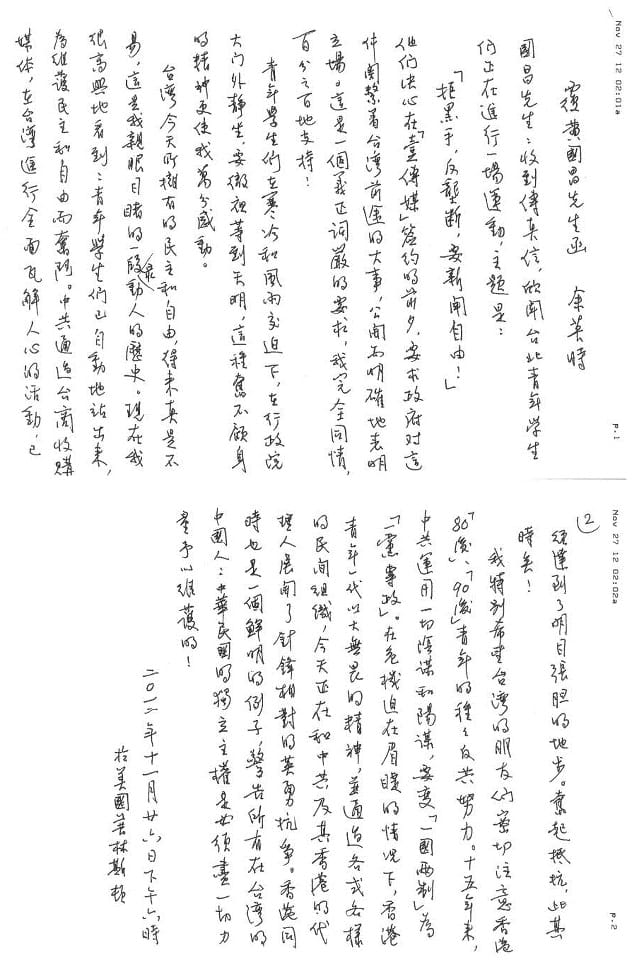 Nov 27 12 02:01a
p.1
覆黃國昌先生函 余英時
國昌先生：收到傳真信，欣聞台北青年學生
们正在進行一場運動，主題是：
「拒黑手，反壟断，要新聞自由！」
他们决心在「壹傳媒」簽約的前夕，要求政府对這
件関繫着台湾前途的大事，公開而明確地表明
立場。這是一個義正詞嚴的要求，我完全同情，
百分之百地支持！
青年學生們在寒冷和風雨交迫下，在行政院
大门外静坐，要徹夜等到天明，這種奮不顧身
的精神更使我萬分感動。
台湾今天所擁有的民主和自由，得来真是不
易，這是我親眼目睹的一段最動人的歷史。現在我
很高興地看到：青年學生们已自動地站出来，
為維護民主和自由而奮鬥。中共通過台商收購
媒体，在台灣進行全面瓦解人心的活動，已
Nov 27 12 02:02a
p.2
②
經達到了明目張胆的地步。奮起抵抗，此其
時矣！
我特别希望台湾的朋友们密切注意香港
「80後」、「90後」青年的種々反共努力。十五年来，
中共運用一切陰谋和陽谋，要变「一國兩制」為
「一黨專政」。在危機迫在眉睫的情况下，香港
青年一代以大無畏的精神，並通過各式各樣
的民间组織，今天正在和中共及其香港的代
理人展開了針鋒相對的英勇抗争。香港同
時也是一個鮮明的例子，警告所有在台湾的
中國人：中華民國的獨立主權是必須盡一切力
量予以維護的！
二〇一二年十一月廿六日下午六時
於美國普林斯頓